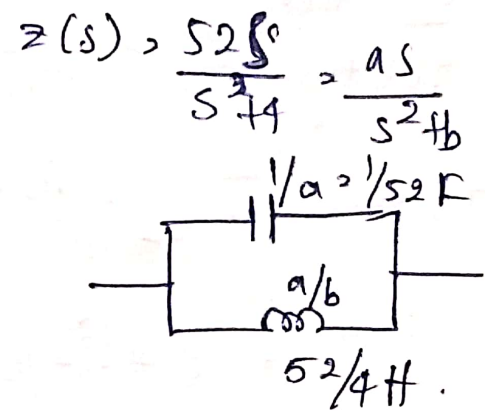 z(s) = 52s / s²+4 = as / s²+b
1/a = 1/52 F
a/b
52/4 H.